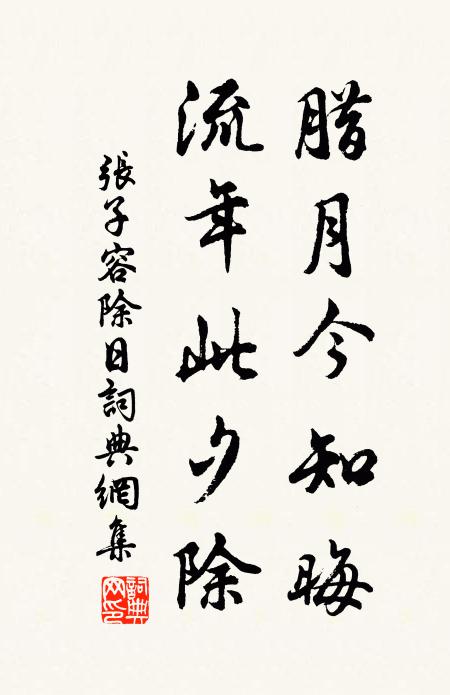 腊月今知晦
流年此夕除
張子容除日詞典網集
詞典网印